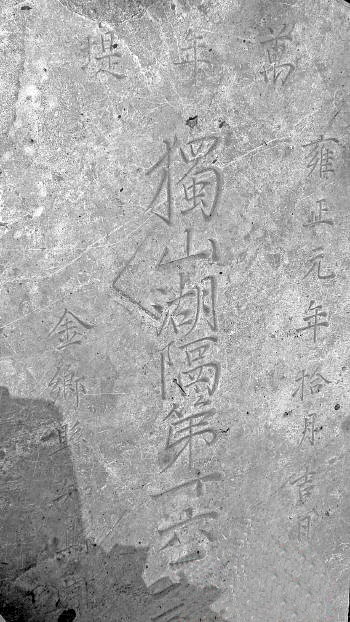 萬年堤
雍正元年拾月吉日
獨山湖隔第十六
金鄉縣